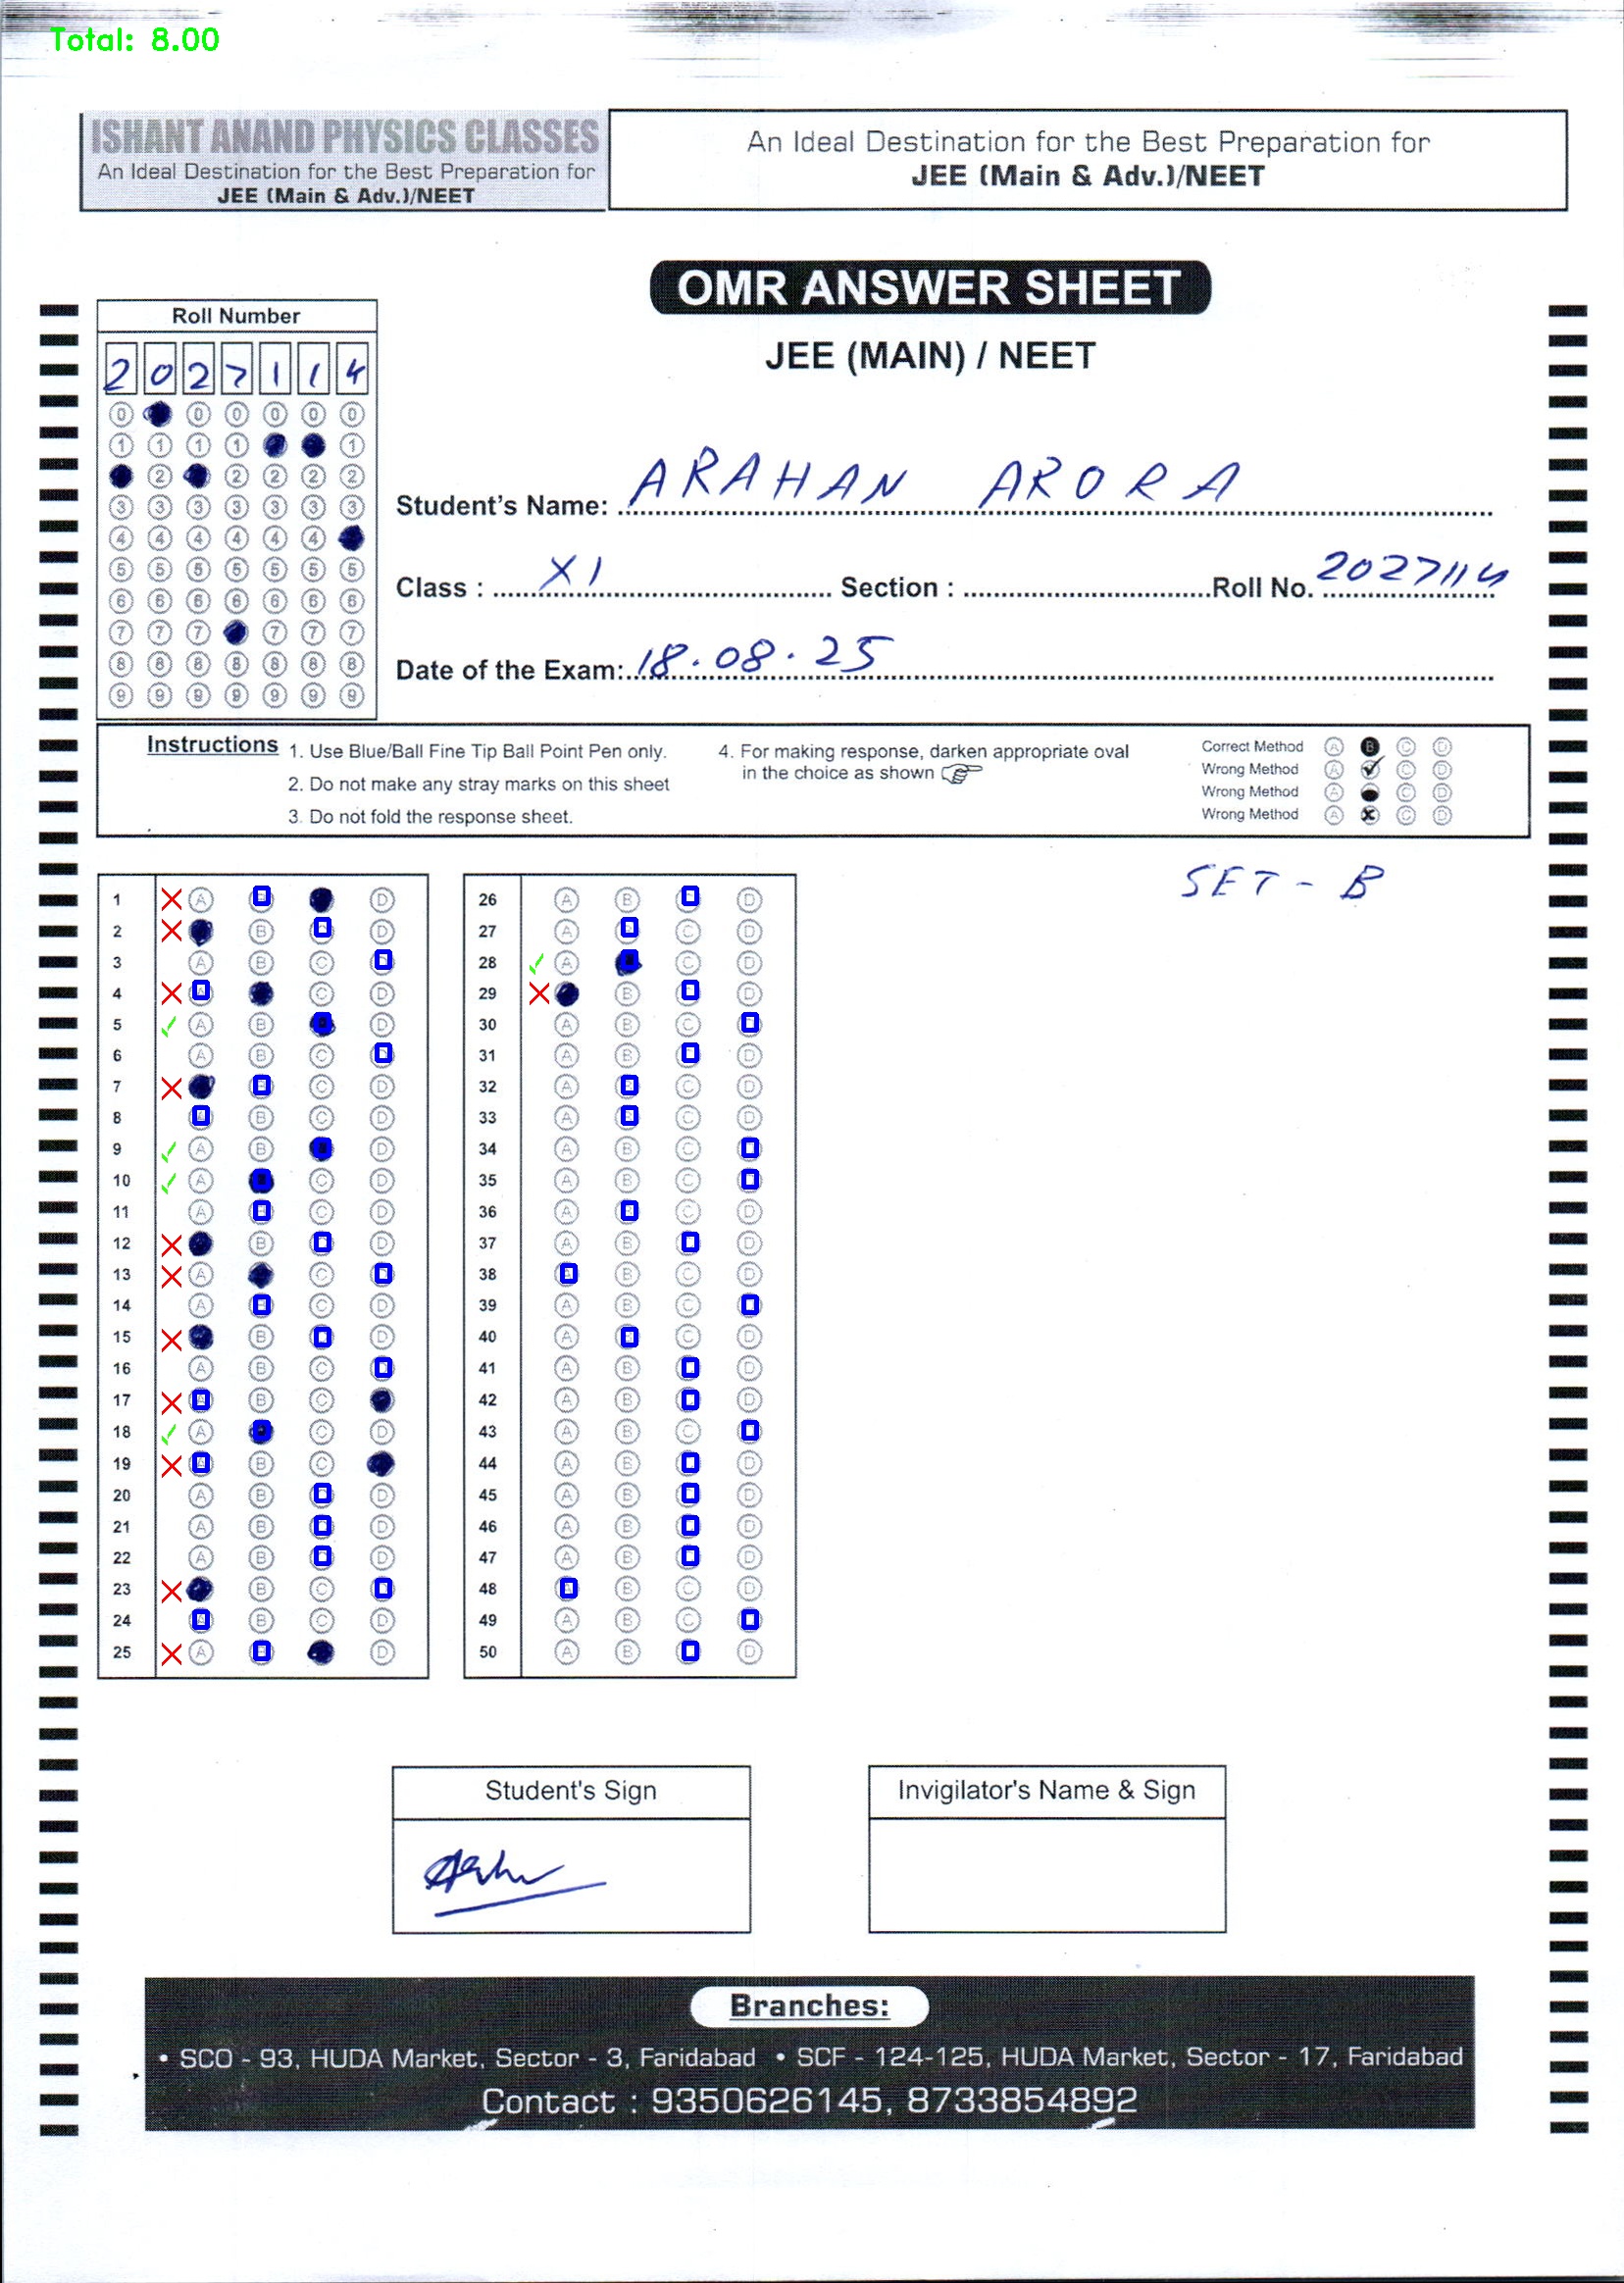 Total: 8.00
ISHANT ANAND PHYSICS CLASSES
An Ideal Destination for the Best Preparation for
JEE (Main & Adv.)/NEET
An Ideal Destination for the Best Preparation for
JEE (Main & Adv.)/NEET
OMR ANSWER SHEET
JEE (MAIN) / NEET
Roll Number
2 0 2 7 1 1 4
0 0 0 0 0 0
1 1 1 1 1
2 2 2 2 2
3 3 3 3 3 3 3
4 4 4 4 4 4
5 5 5 5 5 5 5
6 6 6 6 6 6 6
7 7 7 7 7 7
8 8 8 8 8 8 8
9 9 9 9 9 9 9
Student's Name: ARAHAN ARORA
Class : XI Section : Roll No. 2027114
Date of the Exam: 18.08.25
Instructions
1. Use Blue/Ball Fine Tip Ball Point Pen only.
2. Do not make any stray marks on this sheet
3. Do not fold the response sheet.
4. For making response, darken appropriate oval
in the choice as shown
Correct Method A B C D
Wrong Method A C D
Wrong Method A C D
Wrong Method A C D
SET - B
1 A D
2 B D
3 A B C
4 C D
5 A B D
6 A B C
7 C D
8 B C D
9 A B D
10 A C D
11 A C D
12 B D
13 A C
14 A C D
15 B D
16 A B C
17 B C
18 A C D
19 B C
20 A B D
21 A B D
22 A B D
23 B C
24 B C D
25 A D
26 A B D
27 A C D
28 A C D
29 B D
30 A B C
31 A B D
32 A C D
33 A C D
34 A B C
35 A B C
36 A C D
37 A B D
38 B C D
39 A B C
40 A C D
41 A B D
42 A B D
43 A B C
44 A B D
45 A B D
46 A B D
47 A B D
48 B C D
49 A B C
50 A B D
Student's Sign
Invigilator's Name & Sign
Branches:
• SCO - 93, HUDA Market, Sector - 3, Faridabad • SCF - 124-125, HUDA Market, Sector - 17, Faridabad
Contact : 9350626145, 8733854892